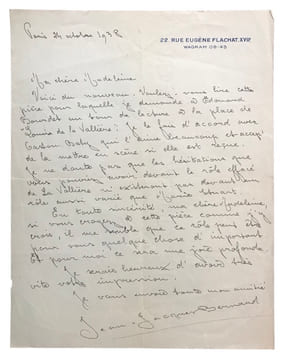 22, RUE EUGÈNE FLACHAT, XVIIe
WAGRAM 09-45
Paris 24 octobre 1938
Ma chère Madeleine,
Voici du nouveau. Voulez-vous lire cette
pièce pour laquelle je demande à Édouard
Bourdet un tour de lecture : à la place de
Louise de la Vallière ? Je le fais d'accord avec
Gaston Baty qui l'aime beaucoup et accepte
de la mettre en scène si elle est reçue.
Je ne doute pas que les hésitations que
vous pouviez avoir devant le rôle effacé
de La Vallière n'existeront pas devant un
rôle aussi varié que
En toute sincérité, ma chère Madeleine,
si vous croyez à cette pièce comme j'y
crois, il me semble que ce rôle peut être
pour vous quelque chose d'important
Et pour moi ce sera une joie profonde.
Je serais heureux d'avoir très
vite votre impression.
Je vous envoie toute mon amitié
Jean-Jacques Bernard